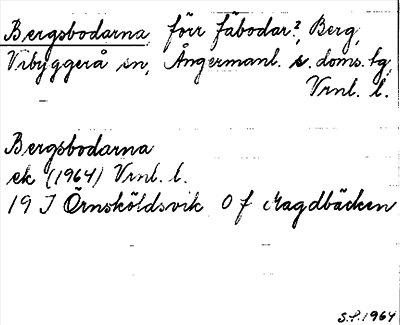 Bergsbodarna, förr fäbodar?, Berg,
Vibyggerå sn, Ångermanl. s. doms. lg,
Vrnl. l.
Bergsbodarna
ek (1964) Vrnl. l.
19 J Örnsköldsvik 0 f Magdbäcken
S.P. 1964